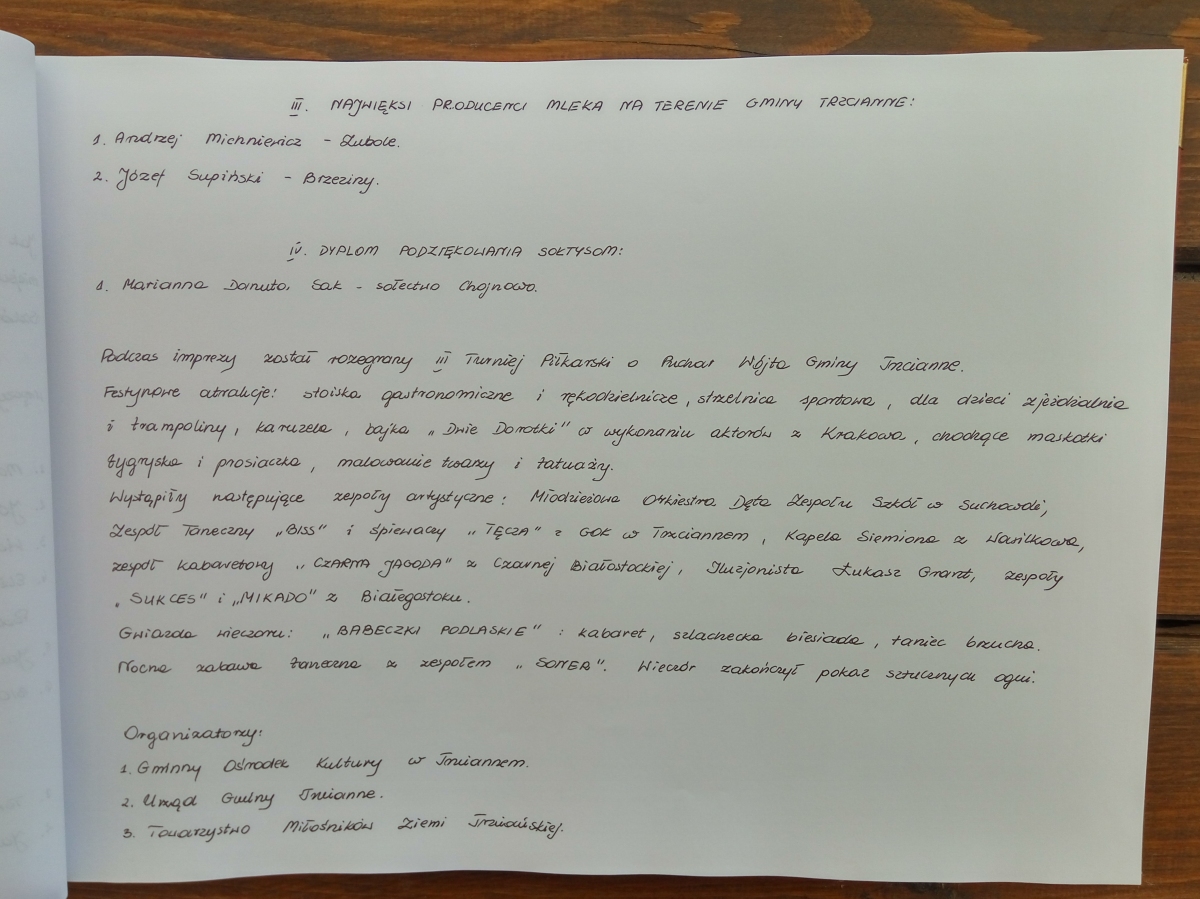 III. NAJWIĘKSI PRODUCENCI MLEKA NA TERENIE GMINY TRZCIANNE:
1. Andrzej Michniewicz - Zubole.
2. Józef Supiński - Brzeziny.
IV. DYPLOM PODZIĘKOWANIA SOŁTYSOM:
1. Marianna Danuta Sak - sołectwo Chojnowo.
Podczas imprezy został rozegrany III Turniej Piłkarski o Puchar Wójta Gminy Trzcianne.
Festynowe atrakcje: stoiska gastronomiczne i rękodzielnicze, strzelnica sportowa, dla dzieci zjeżdżalnia
i trampoliny, karuzela, bajka „Dwie Dorotki" w wykonaniu aktorów z Krakowa, chodzące maskotki
tygryska i prosiaczka, malowanie twarzy i tatuaży.
Wystąpiły następujące zespoły artystyczne: Młodzieżowa Orkiestra Dęta Zespołu Szkół w Suchowoli,
Zespół Taneczny „BISS" i śpiewaczy „TĘCZA" z GOK w Trzciannem, Kapela Siemiona z Wasilkowa,
zespół kabaretowy „CZARNA JAGODA" z Czarnej Białostockiej, Iluzjonista Łukasz Grant, zespoły
„SUKCES" i „MIKADO" z Białegostoku.
Gwiazda wieczoru: „BABECZKI PODLASKIE": kabaret, szlachecka biesiada, taniec brzucha.
Nocna zabawa taneczna z zespołem „SONEA". Wieczór zakończył pokaz sztucznych ogni.
Organizatorzy:
1. Gminny Ośrodek Kultury w Trzciannem.
2. Urząd Gminy Trzcianne.
3. Towarzystwo Miłośników Ziemi Trzciańskiej.